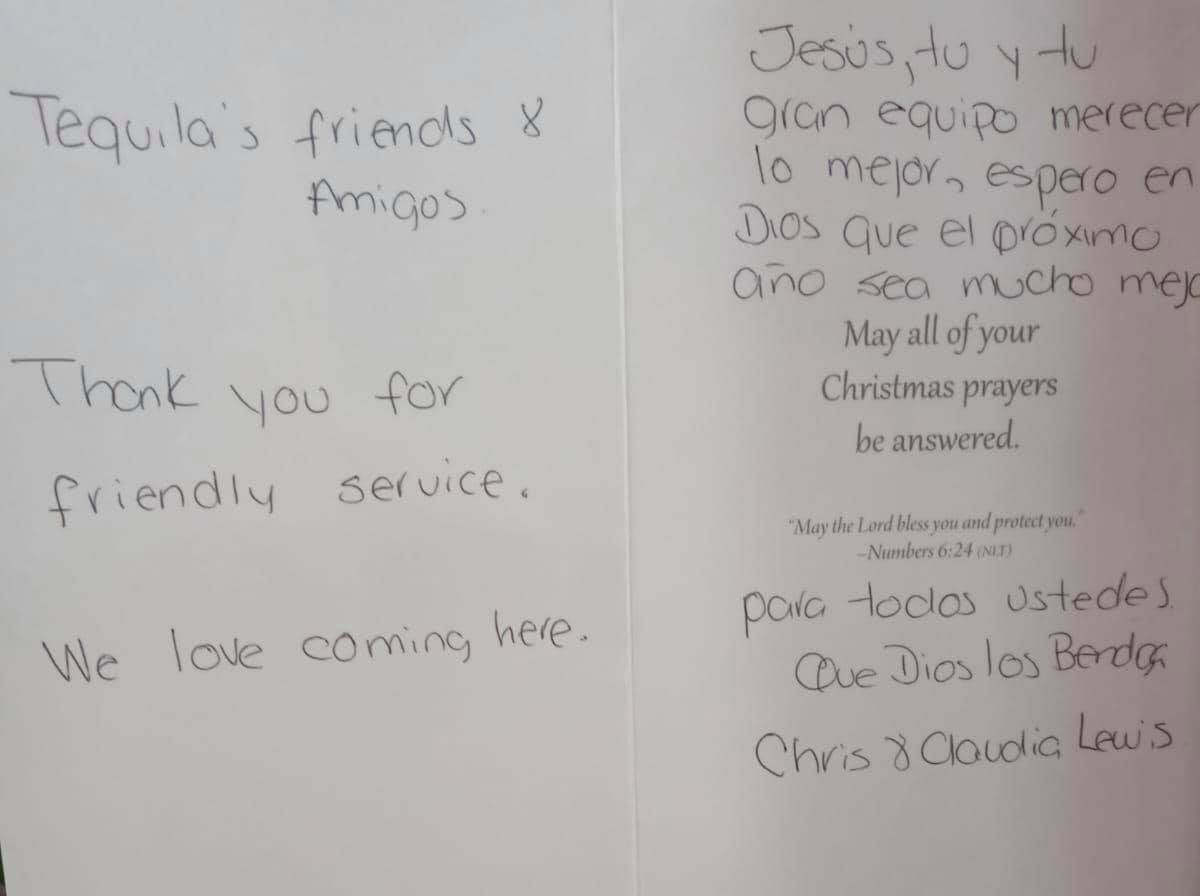 Tequila's friends &
Amigos.
Thank you for
friendly service.
We love coming here.
Jesús, tu y tu
gran equipo merecen
lo mejor, espero en
Dios que el próximo
año sea mucho mejo
May all of your
Christmas prayers
be answered.
"May the Lord bless you and protect you."
–Numbers 6:24 (NLT)
para todos ustedes.
Que Dios los
Chris & Claudia Lewis